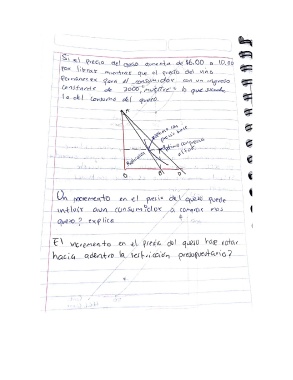 Si el precio del queso aumenta de $6.00 a 10.00
por libra, mientras que el precio del vino
permanece para el consumidor con un ingreso
constante de 2000, muestre lo que sucede
la del consumo del queso.
A
precio base
O
D
D'
Un incremento en el precio del queso puede
influir a un consumidor a comprar más
queso? explica
El incremento en el precio del queso hace rotar
hacia adentro la restricción presupuestaria?